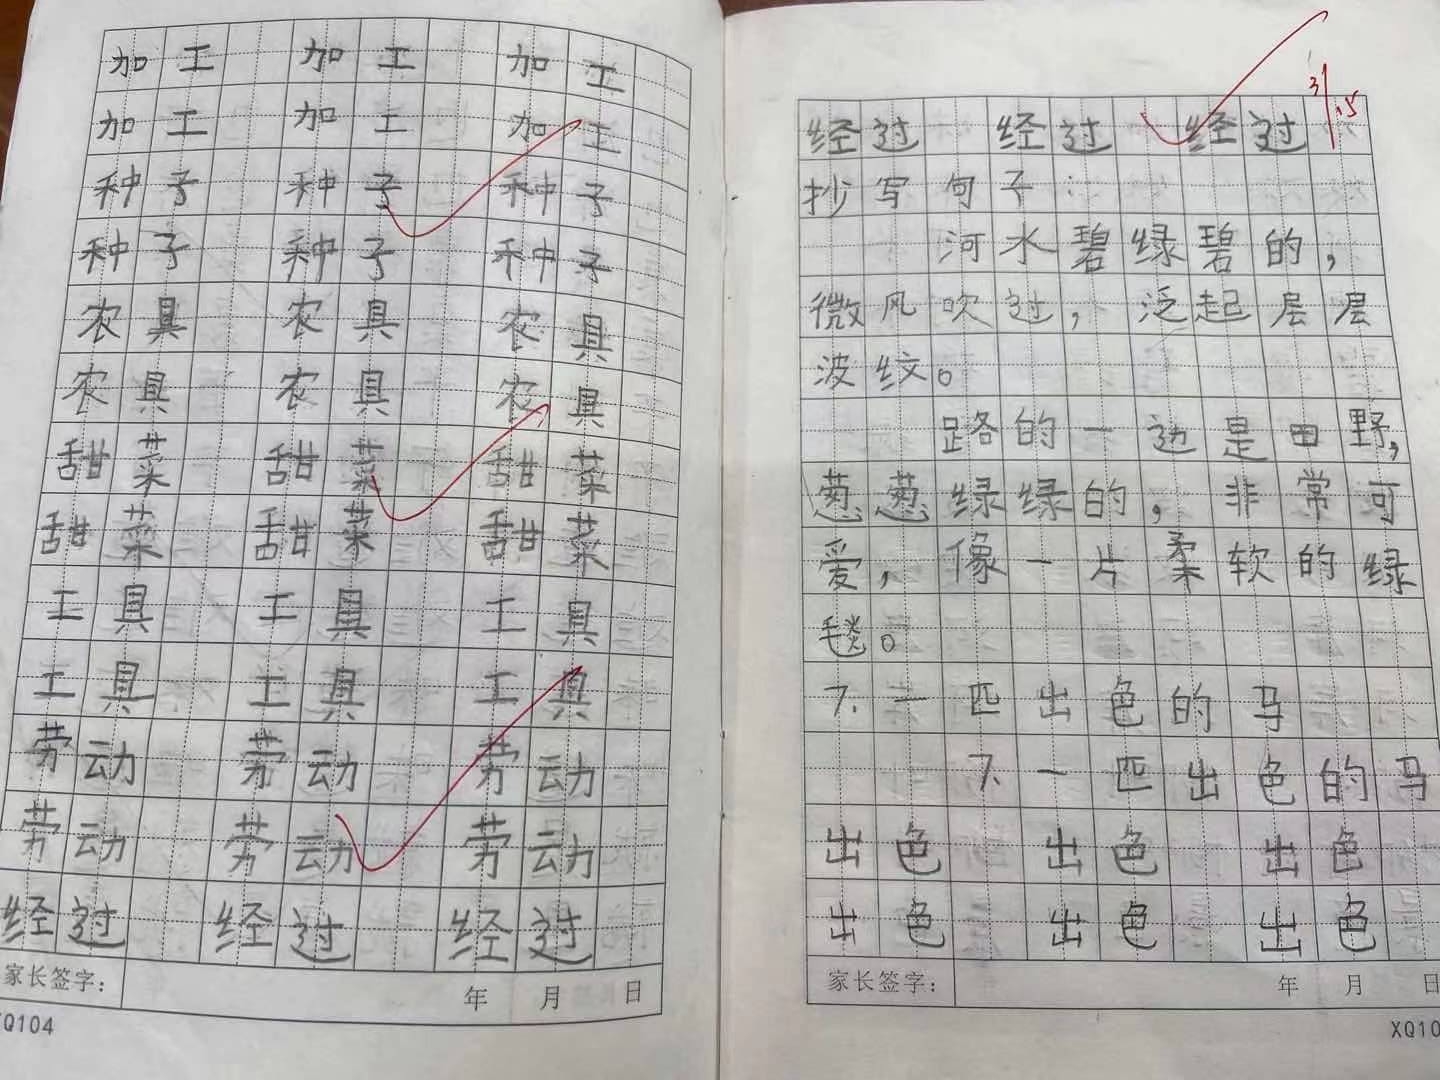 加工 加工 加工
加工 加工 加工
种子 种子 种子
种子 种子 种子
农具 农具 农具
农具 农具 农具
甜菜 甜菜 甜菜
甜菜 甜菜 甜菜
工具 工具 工具
工具 工具 工具
劳动 劳动 劳动
劳动 劳动 劳动
经过 经过 经过
家长签字： 年 月 日
XQ104
3/15
经过 经过 经过
抄写句子：
河水碧绿碧的，
微风吹过，泛起层层
波纹。
路的一边是田野，
葱葱绿绿的，非常可
爱，像一片柔软的绿
毯。
7.一匹出色的马
7.一匹出色的马
出色 出色 出色
出色 出色 出色
家长签字： 年 月 日
XQ10